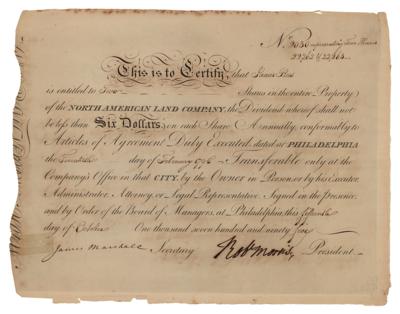 N. 9050 representing Two Shares
22263 & 22264
This is to Certify, that
is entitled to Two Shares in the entire Property
of the NORTH AMERICAN LAND COMPANY, the Dividend whereof shall not
be less than Six Dollars, on each Share Annually, conformably to
Articles of Agreement Duly Executed, dated at PHILADELPHIA
the day of February 1795 Transferable only at the
Company's Office in that CITY, by the Owner in Person, or by his Executor
Administrator Attorney, or Legal Representative. Signed in the presence
and by Order of the Board of Managers, at Philadelphia, this fifteenth
day of October One thousand seven hundred and ninety five
James Marshall Secretary Rob Morris President